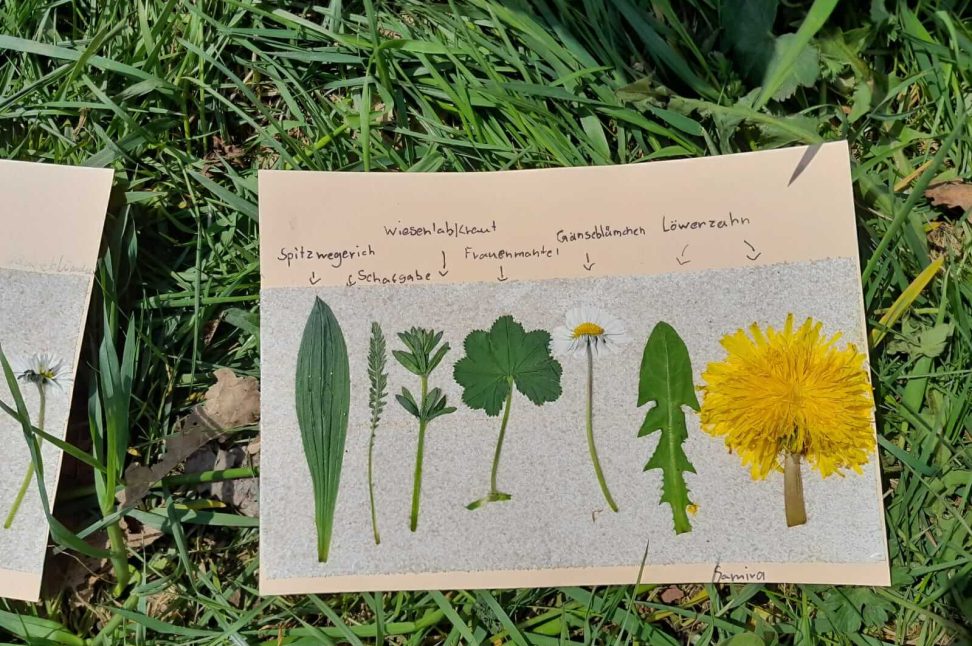 Spitzwegerich
Schafgabe
Wiesenlabkraut
Frauenmantel
Gänseblümchen
Löwerzahn
Samira